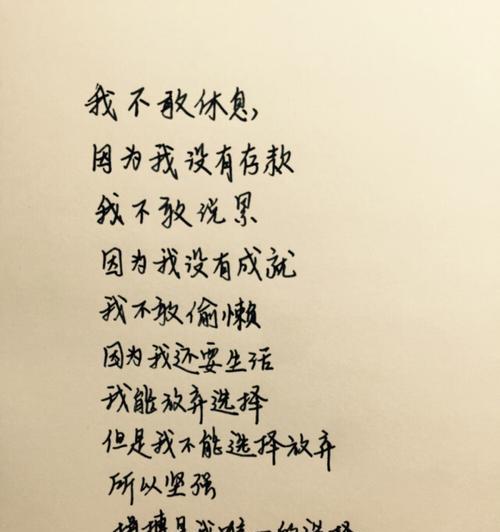 我不敢休息，
因为我没有存款
我不敢说累
因为我没有成就
我不敢偷懒
因为我还要生活
我能放弃选择
但是我不能选择放弃
所以坚强
是我唯一的选择